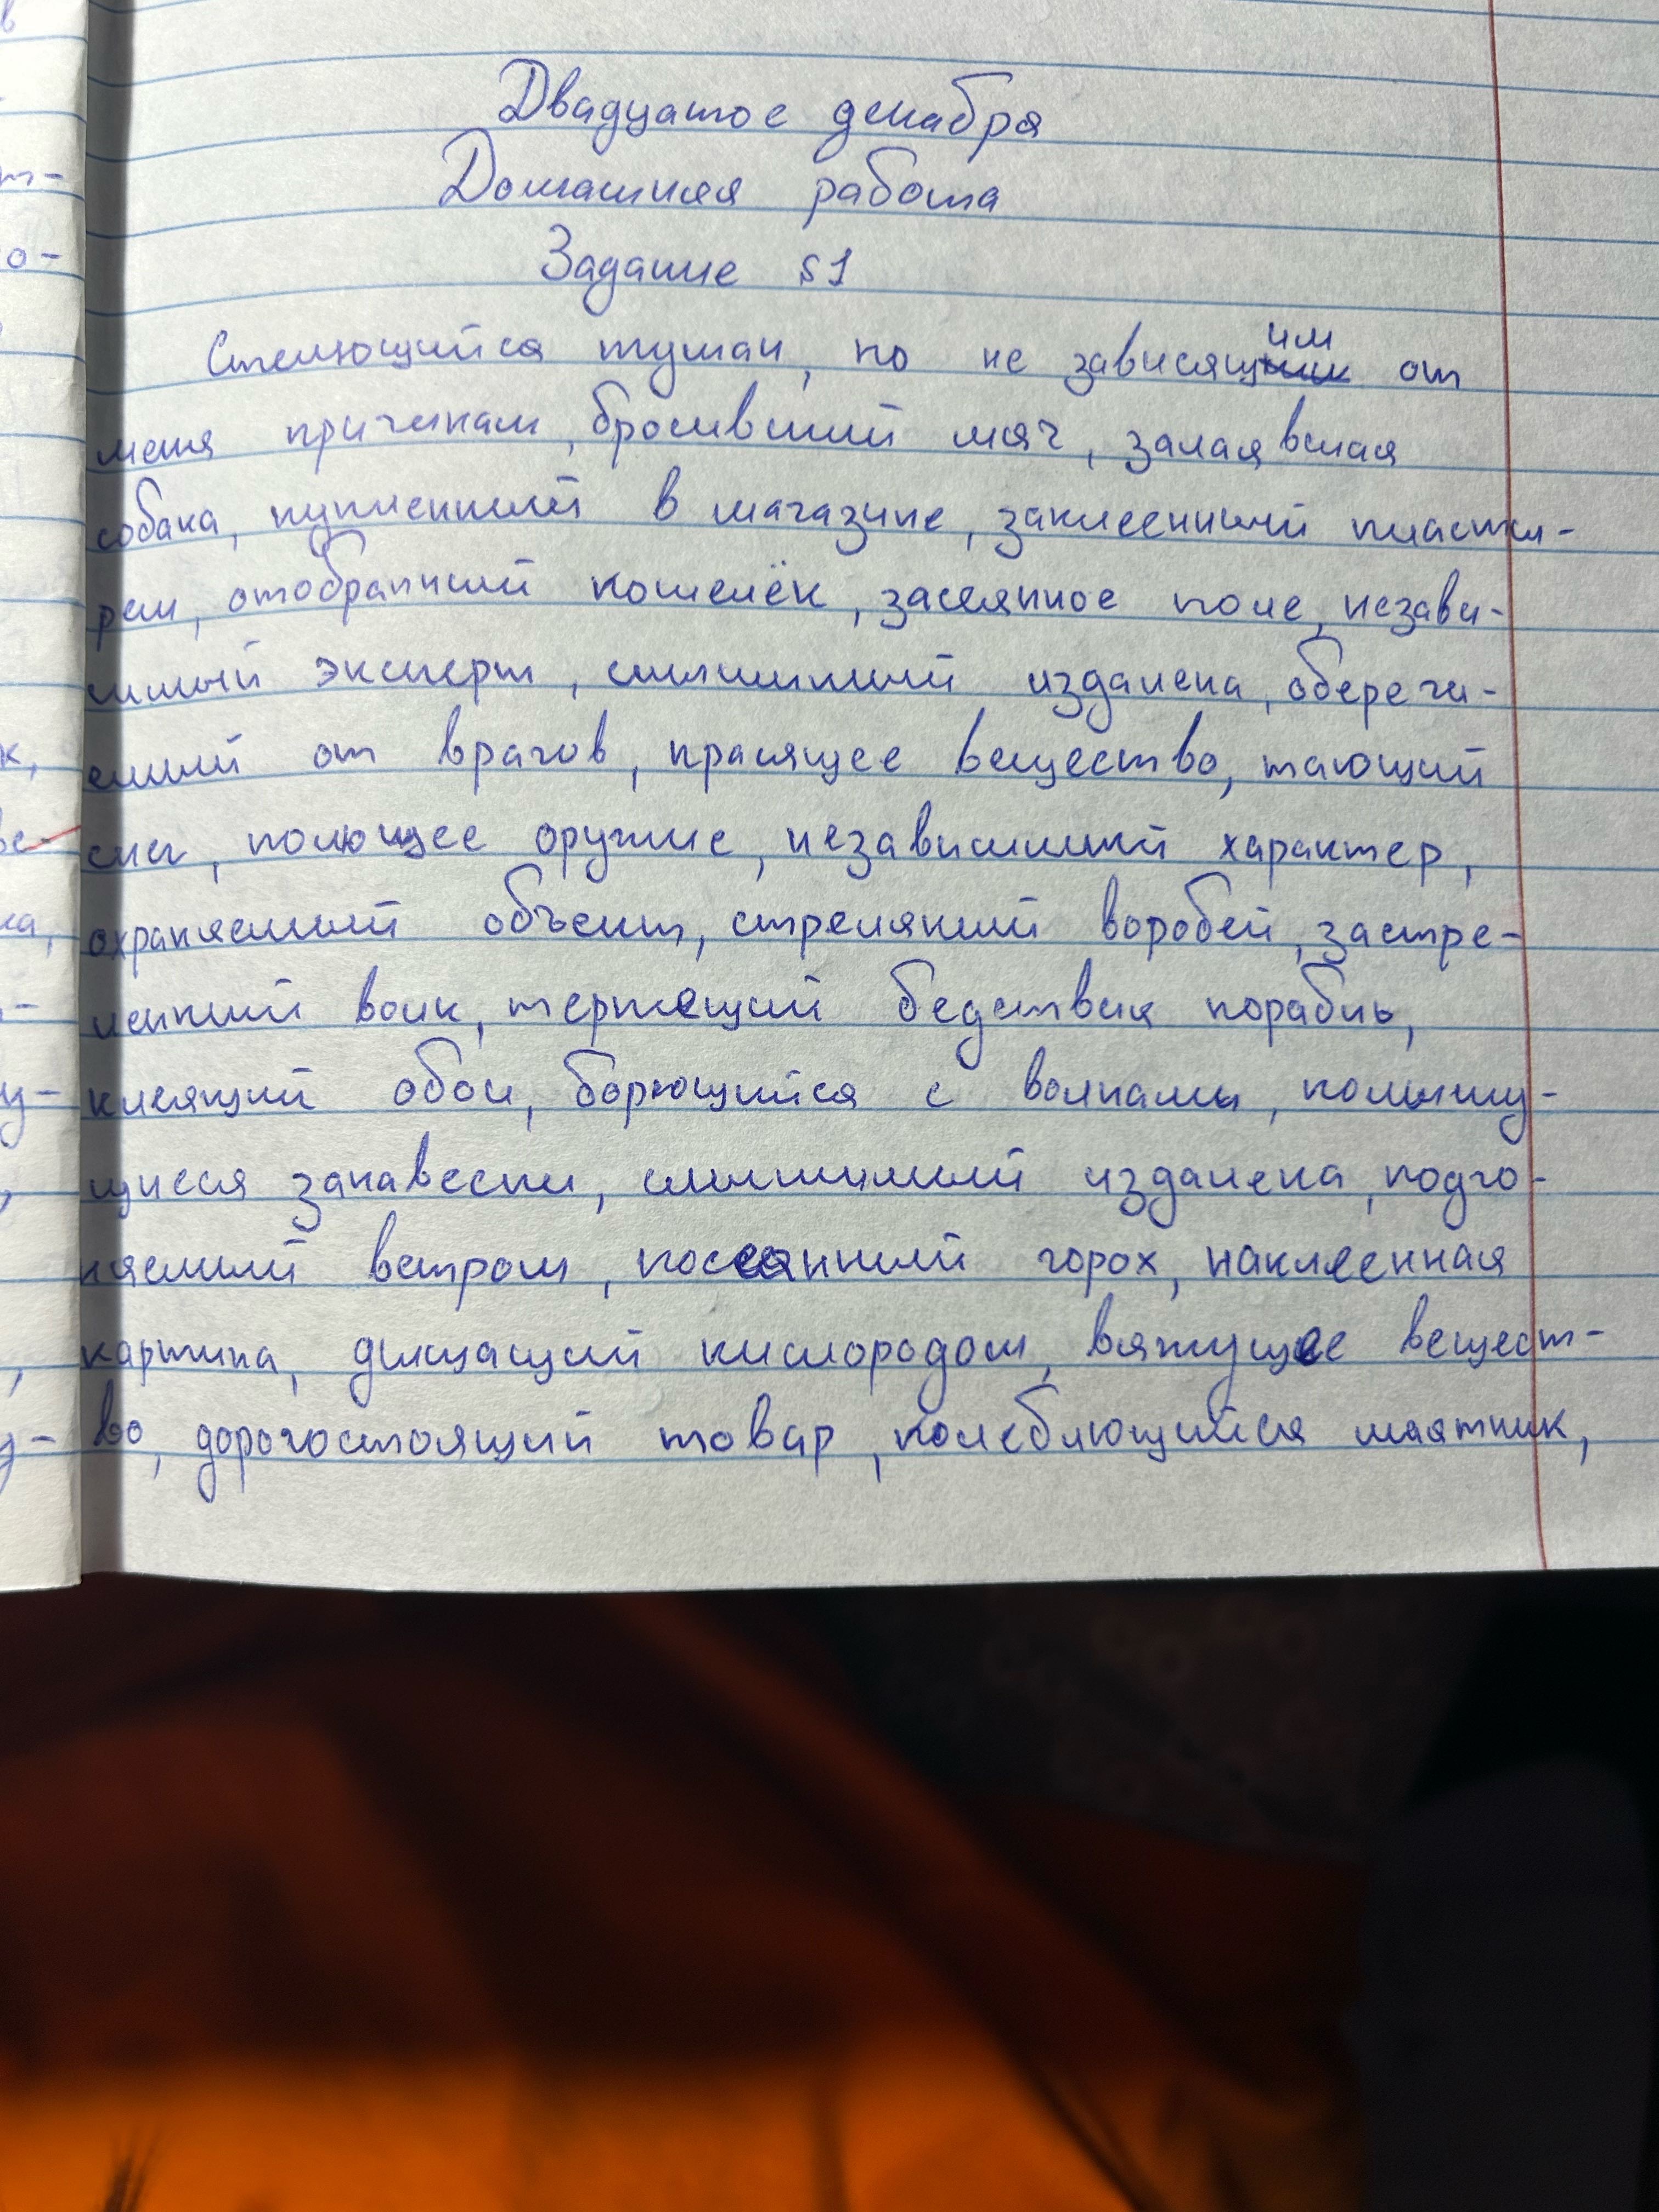 Двадцатое декабря
Домашняя работа
Задание 51
Стелющийся туман, по не зависящим от
меня причинам, бросивший мяч, залаявшая
собака, купленный в магазине, заклеенный пласты-
рем, отобранный кошелёк, засеянное поле, незави-
симый эксперт, слышимый издалека, оберега-
емый от врагов, красящее вещество, тающий
снег, колющее оружие, независимый характер,
охраняемый объект, стрелянный воробей, застре-
ленный волк, терпящий бедствия корабль,
клеящий обои, борющийся с волнами, колышу-
щиеся занавески, слышимый издалека, подго-
няемый ветром, посеянный горох, наклеенная
картина, дышащий кислородом, вяжущее вещест-
во, дорогостоящий товар, колеблющийся маятник,